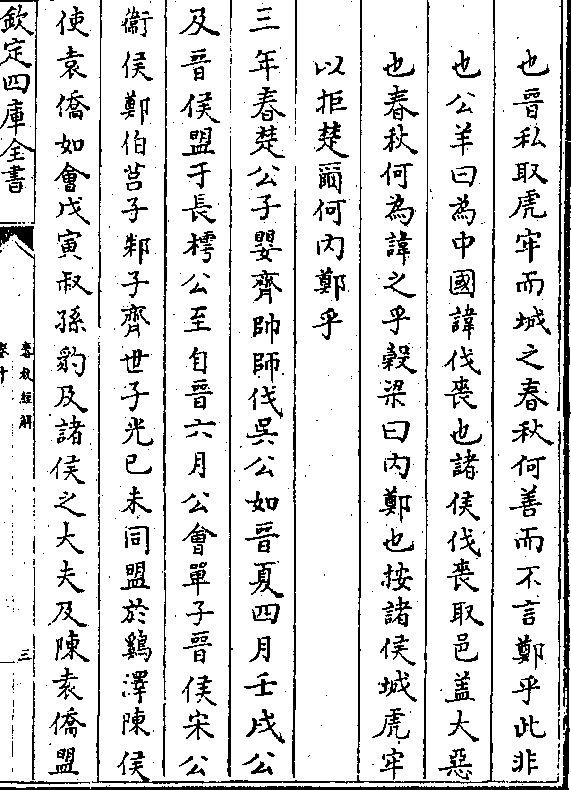 也晉私取虎牢而城之春秋何善而不言鄭乎此非
也公羊曰為中國諱伐喪也諸侯伐喪取邑盖大惡
也春秋何為諱之乎穀梁曰内鄭也按諸侯城虎牢
以拒楚爾何内鄭乎
三年春楚公子嬰齊帥師伐吳公如晉夏四月壬戌公
及晉侯盟于長樗公至自晉六月公會單子晉侯宋公
衞侯鄭伯莒子邾子齊世子光已未同盟於鷄澤陳侯
使袁僑如會戊寅叔孫豹及諸侯之大夫及陳袁僑盟
欽定四庫全書
春秋經解
卷十
三